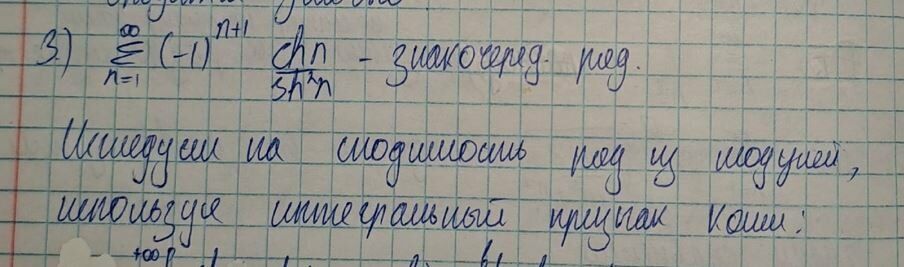 3.) ∞ Σ n=1 (-1)^{n+1} ch n / sh²n - знакочеред. ряд.
Исследуем на сходимость ряд из модулей,
используя интегральный признак Коши:
+∞